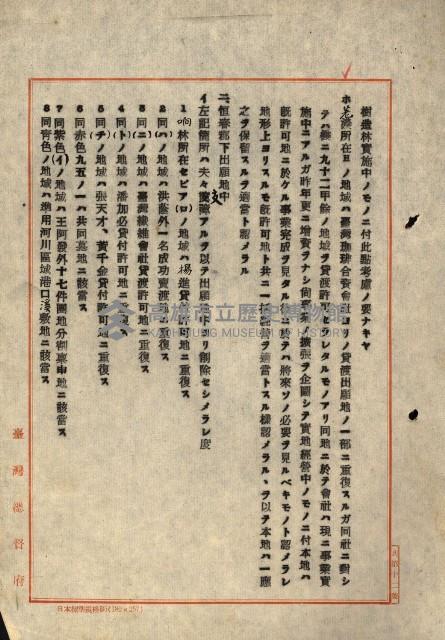 樹造林實施中ノモノニ付此點考慮ノ要ナキヤ
ホ老濃所在ヨノ地域ハ臺灣珈琲合資會社ヨリノ貸渡出願地ノ一部ニ重復スルガ同社ニ對シ
テハ襄ニ九十二甲餘ノ地域ヲ貸渡許可セラレタルモノアリ同地ニ於テ會社ハ現ニ事業實
施中ニアルガ昨年更ニ增資ヲナシ尚事業ノ擴張ヲ企圖シテ實地經營中ノモノニ付本地ハ
既許可地ニ於ケル事業完成ヲ見タル上ニ於テハ將來ソノ必要ヲ見ルベキモノト認メラレ
地形上ヨリスルモ既許可地ト共ニ一団經營ヲ適當トスル樣認メラルヽヲ以テ本地ハ一應
之ヲ保留スルヲ適當ト認メラル
二、恒春郡下出願地中
イ左記箇所ハ夫々支障アルヲ以テ出願區域中ヨリ削除セシメラレ度
1 响林所在セピア(ロ)ノ地域ハ楊進貸渡許可地ニ重復ス
2 同(ハ)ノ地域ハ洪蔭外一名成功賣渡地ニ重復ス
3 同(ニ)ノ地域ハ臺灣纖維會社貸渡許可地ニ重復ス
4 同(ト)ノ地域ハ潘加必貸付許可地ニ重復ス
5 同(チ)ノ地域ハ張天才、黃千金貸付許可地ニ重復ス
6 同赤色九五ノ一ハ共同墓地ニ該當ス
7 同紫色(イ)ノ地域ハ王阿發外十七件團地分割稟申地ニ該當ス
8 同青色ノ地域ハ準用河川區域港口溪敷地ニ該當ス
臺灣總督府
高雄市立歷史博物館
KAOHSIUNG MUSEUM OF HISTORY
日本標準規格B5(182×257)